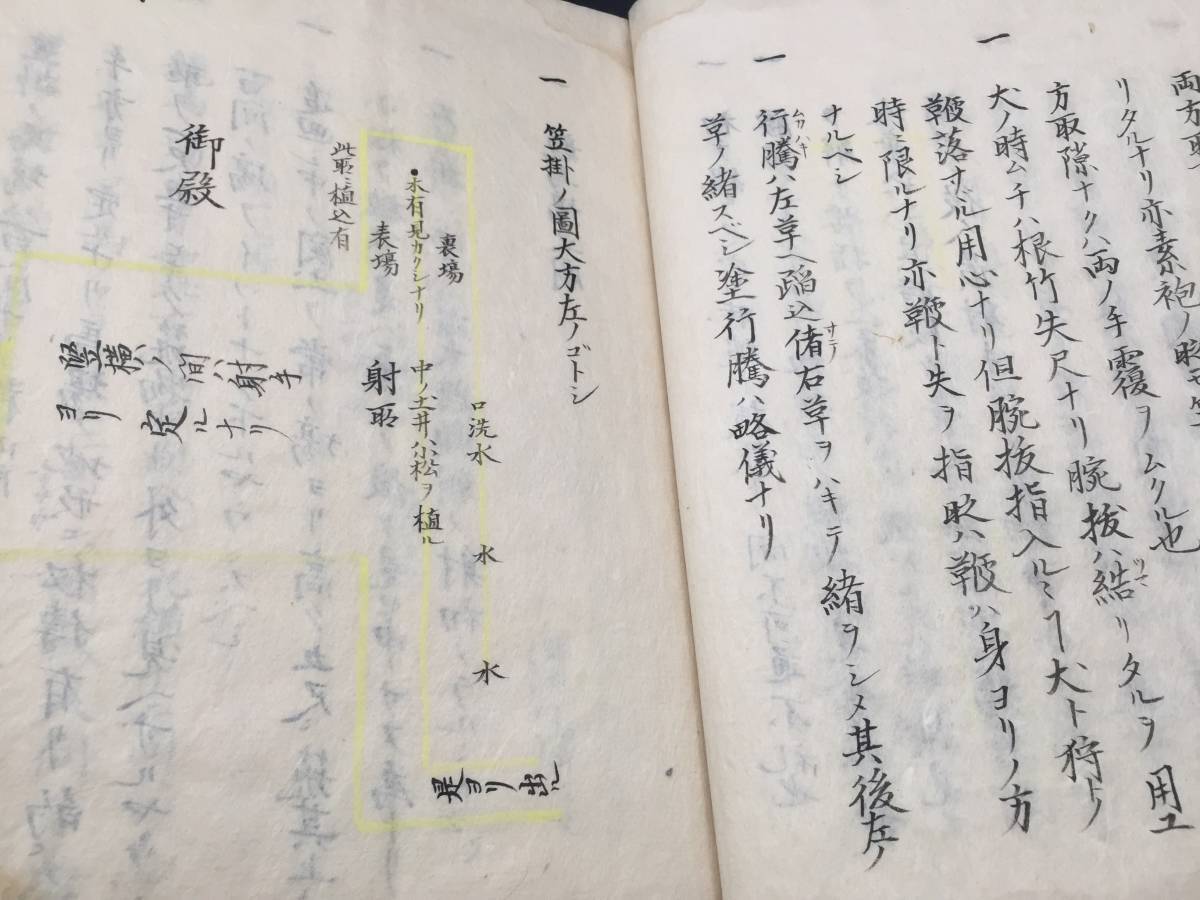 両方取
リタルナリ亦素袍ノ時
方取隙ナクハ両ノ手覆ヲムクル也
一 犬ノ時ムチハ根竹失尺ナリ腕抜ハ結リタルヲ用ユ
鞭落サヾル用心ナリ但腕抜指入ルヿ犬ト狩トノ
時ニ限ルナリ亦鞭ト失ヲ指時ハ鞭ハ身ヨリノ方
ナルベシ
一 行騰ハ左草ヘ蹈込偖右草ヲハキテ緒ヲシメ其後左ノ
草ノ緒スベシ塗行騰ハ略儀ナリ
一 笠掛ノ圖大方左ノゴトシ
口洗水
水
水
裏場
中ノ土井ハ小松ヲ植ル
木有見カクシナリ
表場
射所
是ヨリ出ル
此所ニ植込有
御殿
竪横ノ間ハ射手
ヨリ定ルナリ